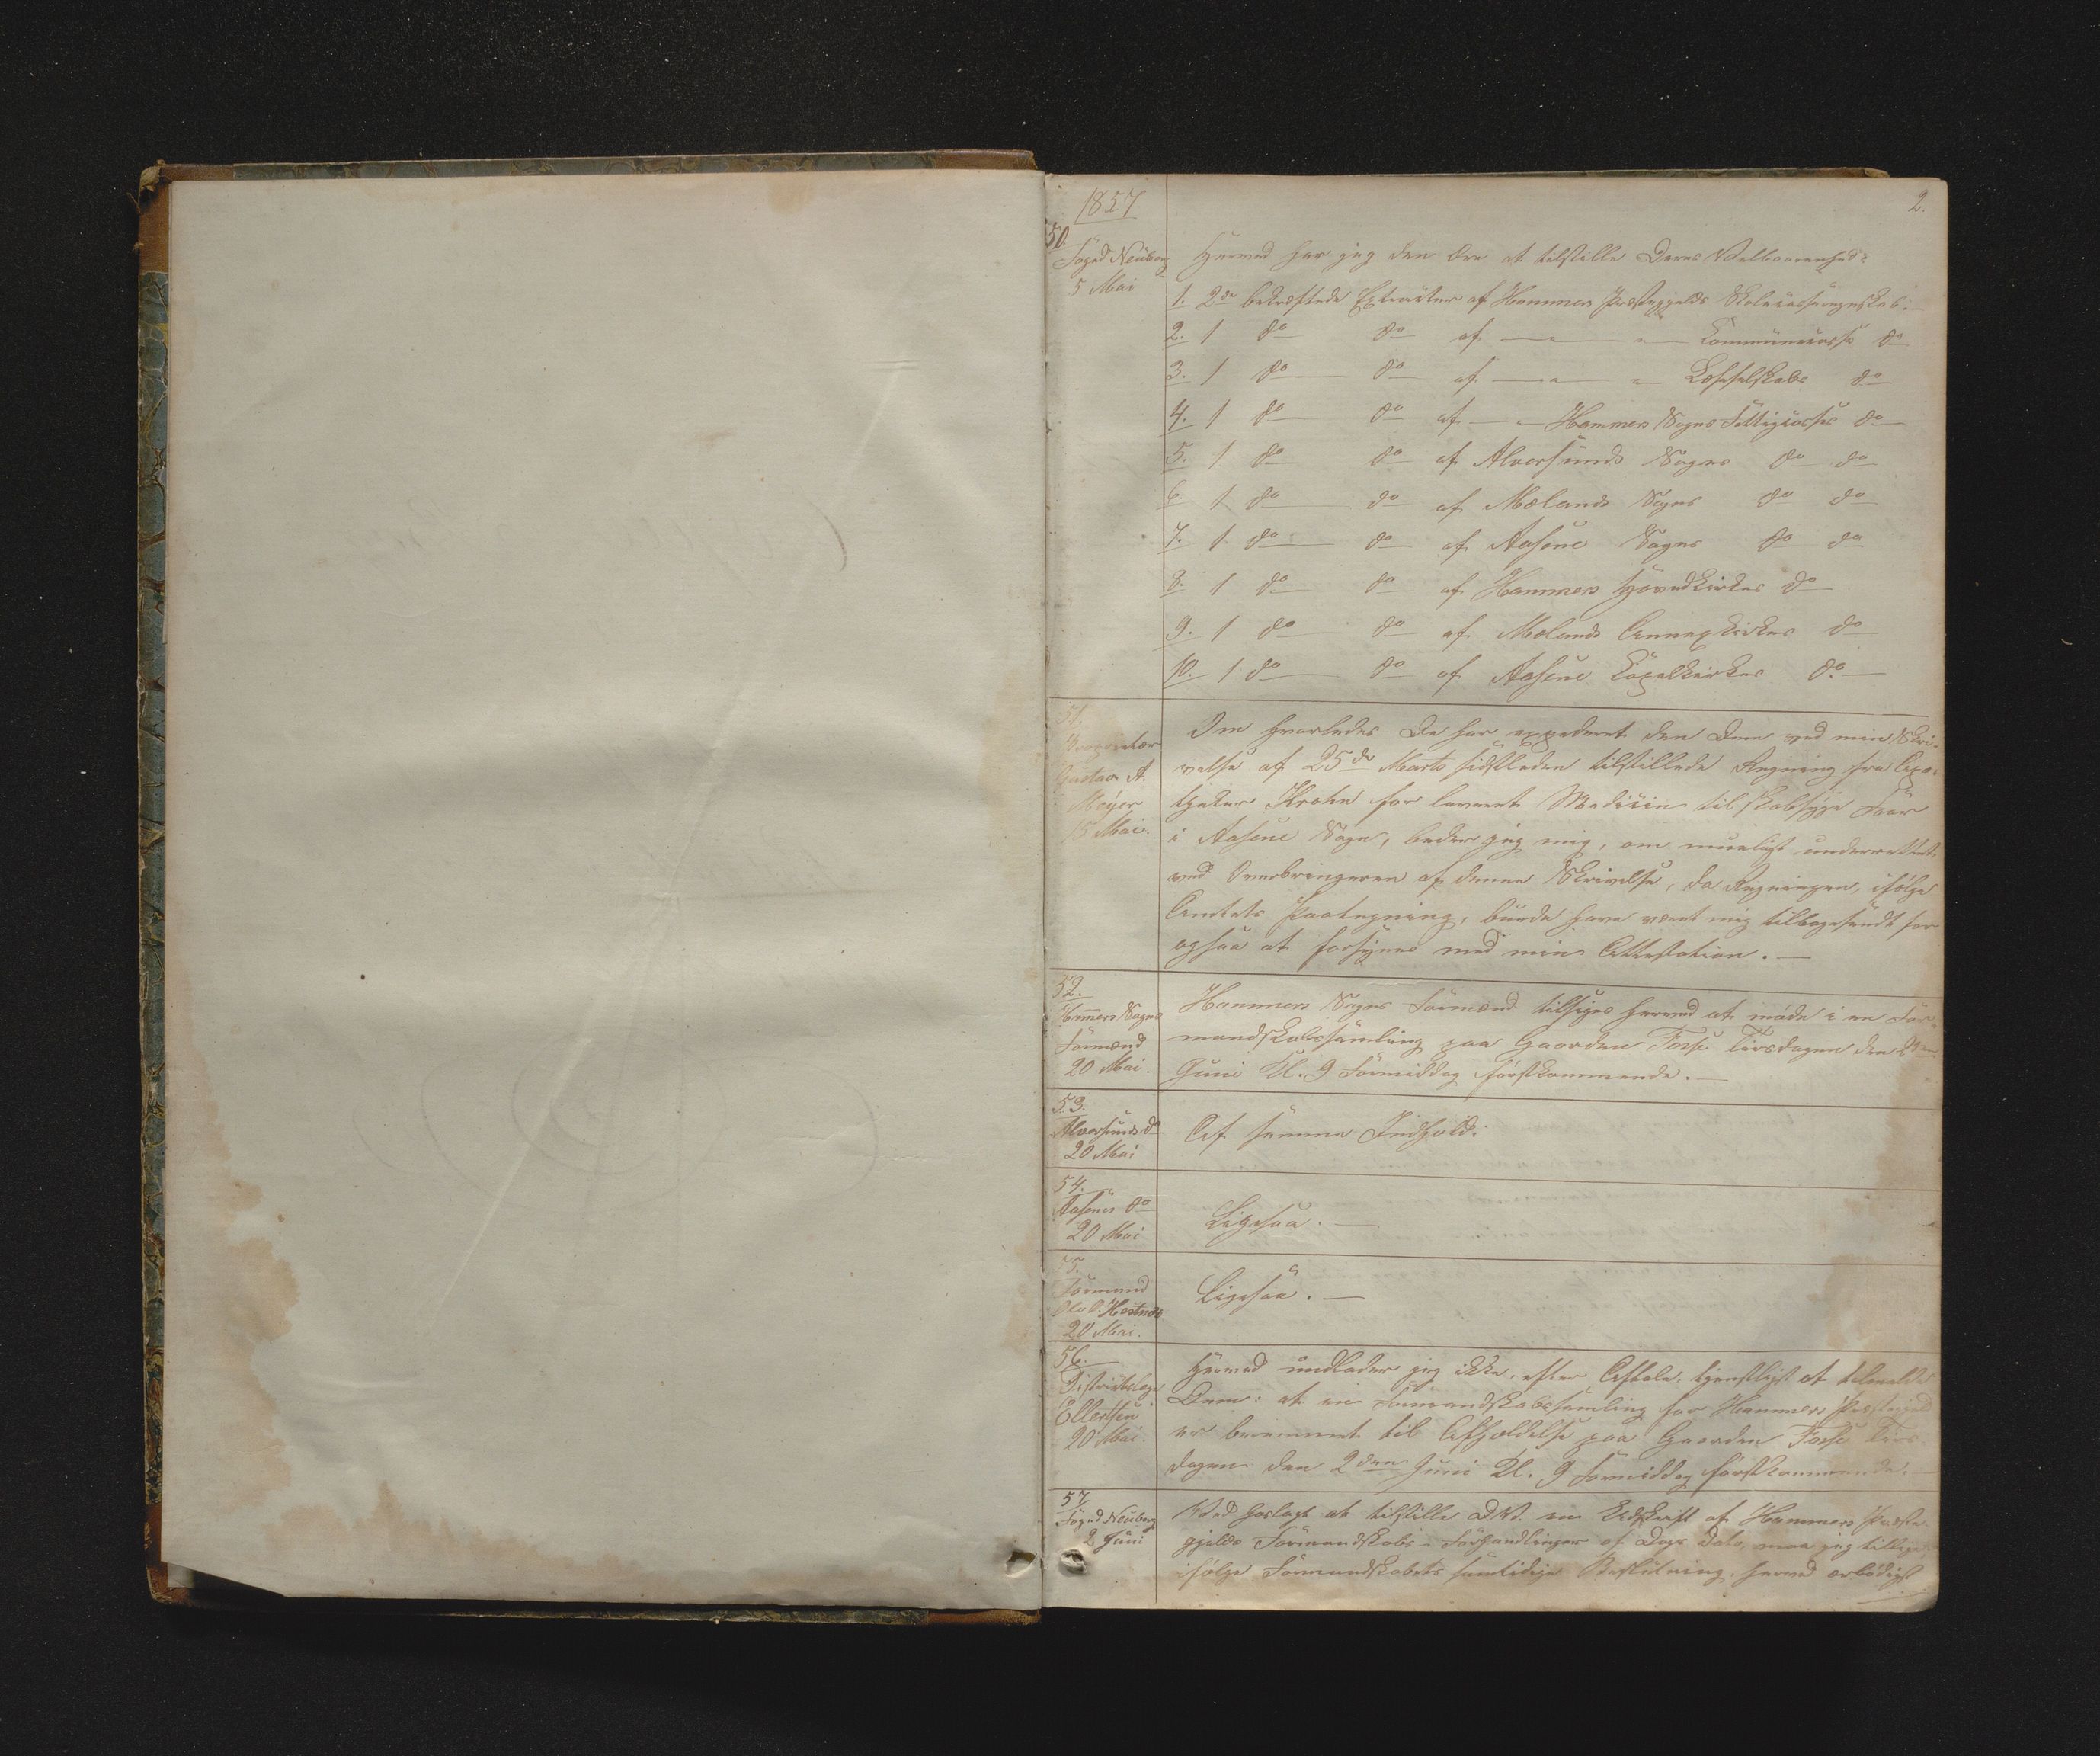 2.
1857
50.
Foged Neüberg
5 Mai
Hermed har jeg den Ære at tilstille Deres Velbaarenhed:
1. 2de bekræftede Extracter af Hammers Præstegjelds Skolecasseregnskab.
2. 1 do do af — " — " — Communecasse do
3. 1 do do af — " — " — do
4. 1 do do af — " — Hammers Sogns Fattigcasses do
5. 1 do do af Alversunds Sogns do do
6. 1 do do af Mælands Sogns do do
7. 1 do do af Aasene Sogns do do
8. 1 do do af Hammers Hovedkirkes do
9. 1 do do af Mælands Annexkirkes do
10. 1 do do af Aasene Capelkirkes do.
51.
Proprietær
Gustav A.
Meÿer
15 Mai.
Om hvorledes De har expederet den Dem ved min Skri-
velse af 25de Marts sidstleden tilstillede Regning fra Apo-
theker Krohn for leveret Medicin til skabsyge Faar
i Aasene Sogn, beder jeg mig, om mueligt underrettet
ved Overbringeren af denne Skrivelse, da Regningen, ifølge
Amtets Paategning, burde have været mig tilbagesendt for
ogsaa at forsynes med min Attestation. —
52.
Hammers Sogns
Formænd
20 Mai.
Hammers Sogns Formænd tilsiges herved at møde i en For-
mandskabssamling paa Gaarden Fosse Tirsdagen den 2den
Juni Kl. 9 Formiddag førstkommende. —
53.
Alversunds do
20 Mai
Af samme Indhold.
54.
Aasenes do
20 Mai
Ligesaa. —
55.
Formand
Ole O. Hestnæs
20 Mai.
Ligesaa. —
56.
Districtslæge
Ellertsen
20 Mai.
Herved undlader jeg ikke, efter Aftale, tjenstligst at tilmelde
Dem: at en Formandskabssamling for Hammers Præstegjeld
er berammet til Afholdelse paa Gaarden Fosse Tirs-
dagen den 2den Juni Kl. 9 Formiddag førstkommende.
57.
Foged Neüberg
2 Juni
Ved hoslagt at tilstille D.V. en Udskrift af Hammers Præste-
gjelds Formandskabs-Forhandlinger af Dags Dato, maa jeg tillige
ifølge Formandskabets samtidige Beslutning, herved ærbødigst